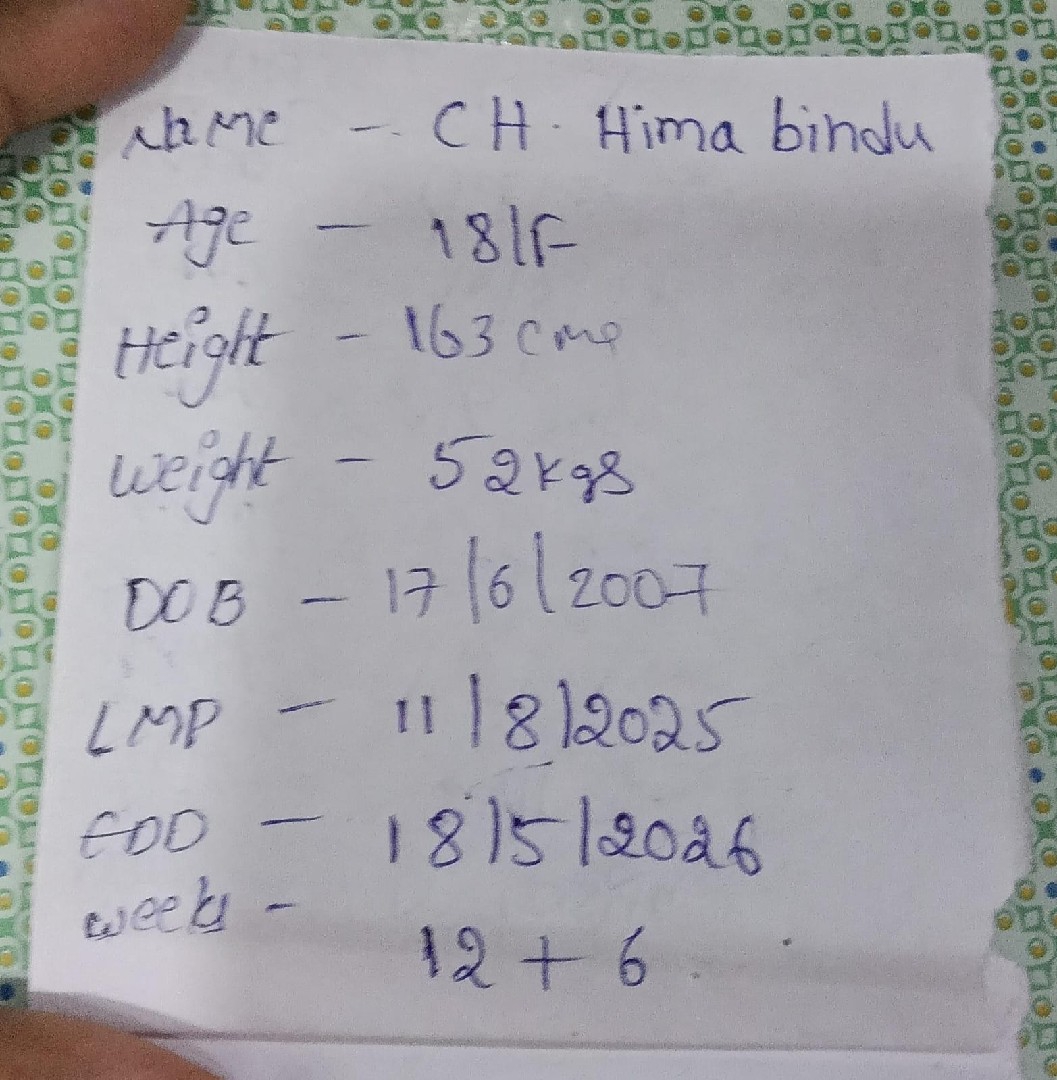 Name - CH. Hima bindu
Age - 18/F
Height - 163 cms
Weight - 52kgs
DOB - 17/6/2007
LMP - 11/8/2025
EDD - 18/5/2026
weeks -
12 + 6